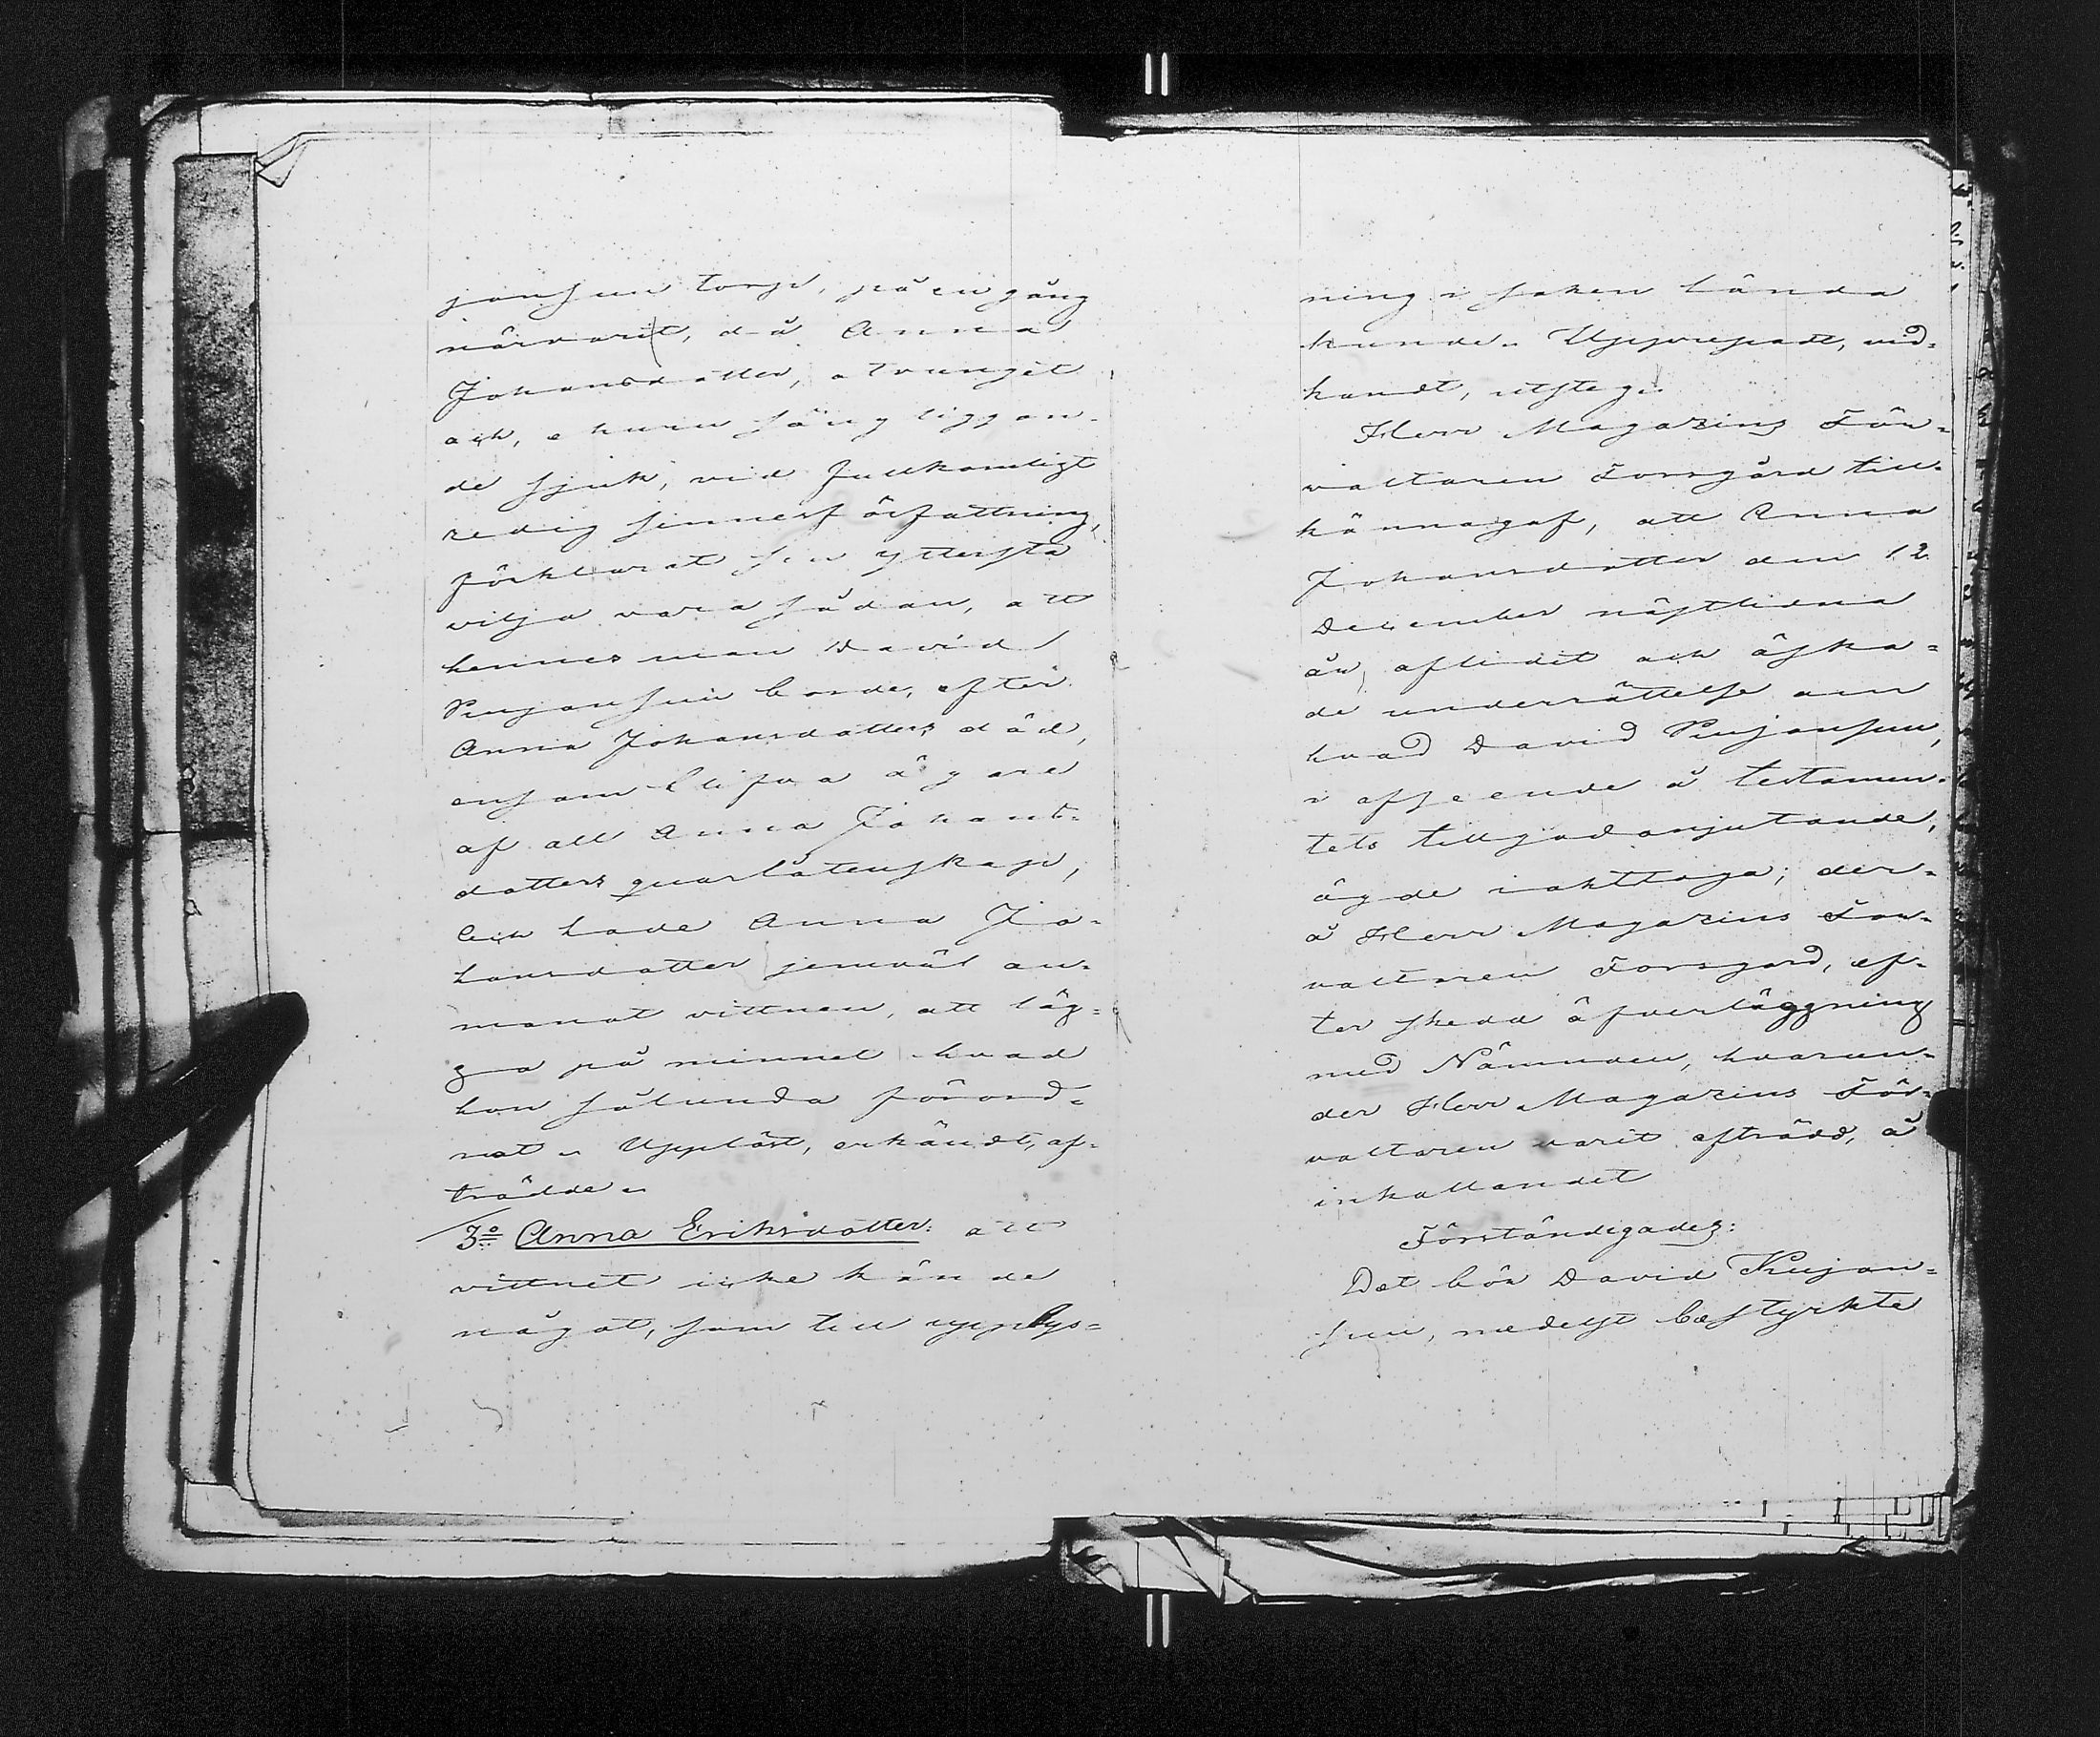 jonsuu torp, på en gång
närvarit, då Anna
Johansdotter, otvungit
och, ehuru säng liggan-
de sjuk, vid fullkomligt
redig sinnesförfattning,
förklarat sin yttersta
vilja vara sådan, att
hennes man David
Penjonsuu borde, efter
Anna Johansdotters död,
ensam blifva ägare
af all Anna Johans-
dotters quarlåtenskap,
Och hade Anna Jo-
hansdotter jemväl an-
manat vittnen, att läg-
ga på minnet hvad
hon sålunda förord-
nat. Uppläst, erkändt, af-
trädde.
3o Anna Eriksdotter: att
vittnet icke kände
något, som till upplys-
ning i saken lända
kunde. Upprepadt, ved-
kändt, utsteg.
Herr Magazins För-
valtaren Forsgård till-
kännagaf, att Anna
Johansdotter den 12
December nästlidna
år, aflidit och äska-
de underrättelse om
hvad David Penjonsuu,
i afseende å testamen-
tets tillgodonjutande,
ägde iakttaga; der-
å Herr Magazins För-
valtaren Forsgård, ef-
ter skedd öfverläggning
med Nämnden, hvarun-
der Herr Magazins För-
valtaren varit afträdd, å
inkallandet
Förståndigades:
Det bör David Penjon-
suu, medelst bestyrkta